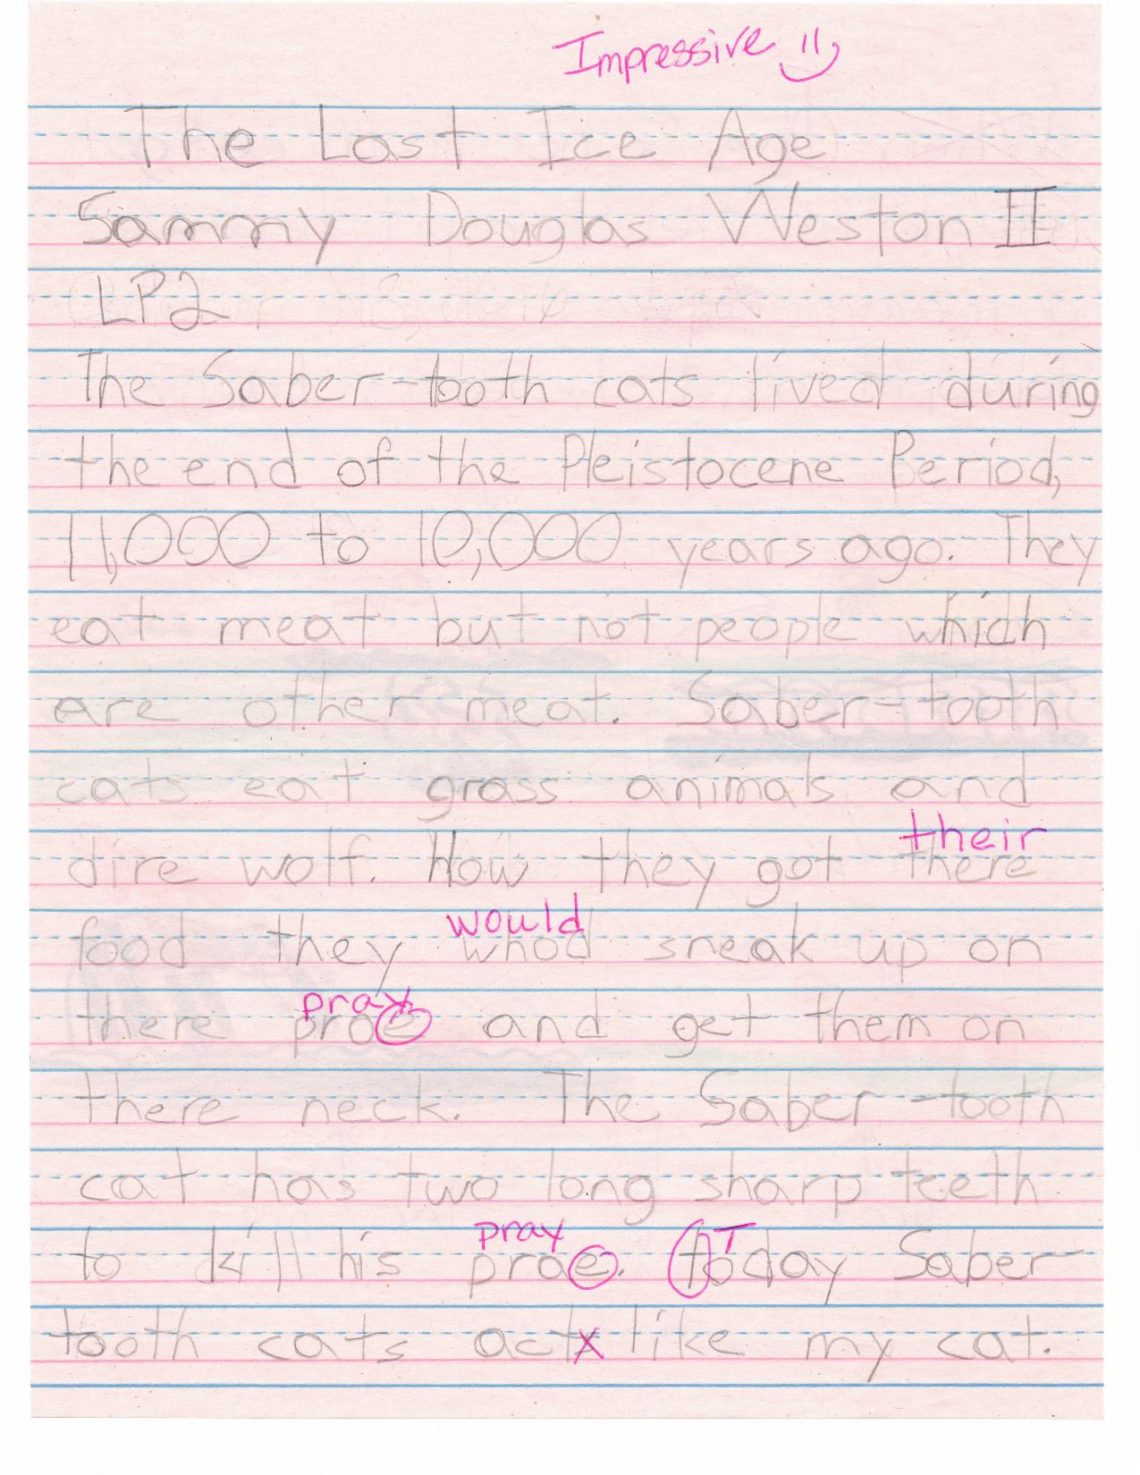 Impressive
The Last Ice Age
Sammy Douglas Weston II
LP2
The Saber-tooth cats lived during
the end of the Pleistocene Period,
11,000 to 10,000 years ago. They
eat meat but not people which
are other meat. Saber-tooth
cats eat grass animals and
their
dire wolf. How they got there
would
food they whod sneak up on
pray
there proe and get them on
there neck. The Saber-tooth
cat has two long sharp teeth
pray T
to kill his proe. today Saber-
tooth cats act x like my cat.